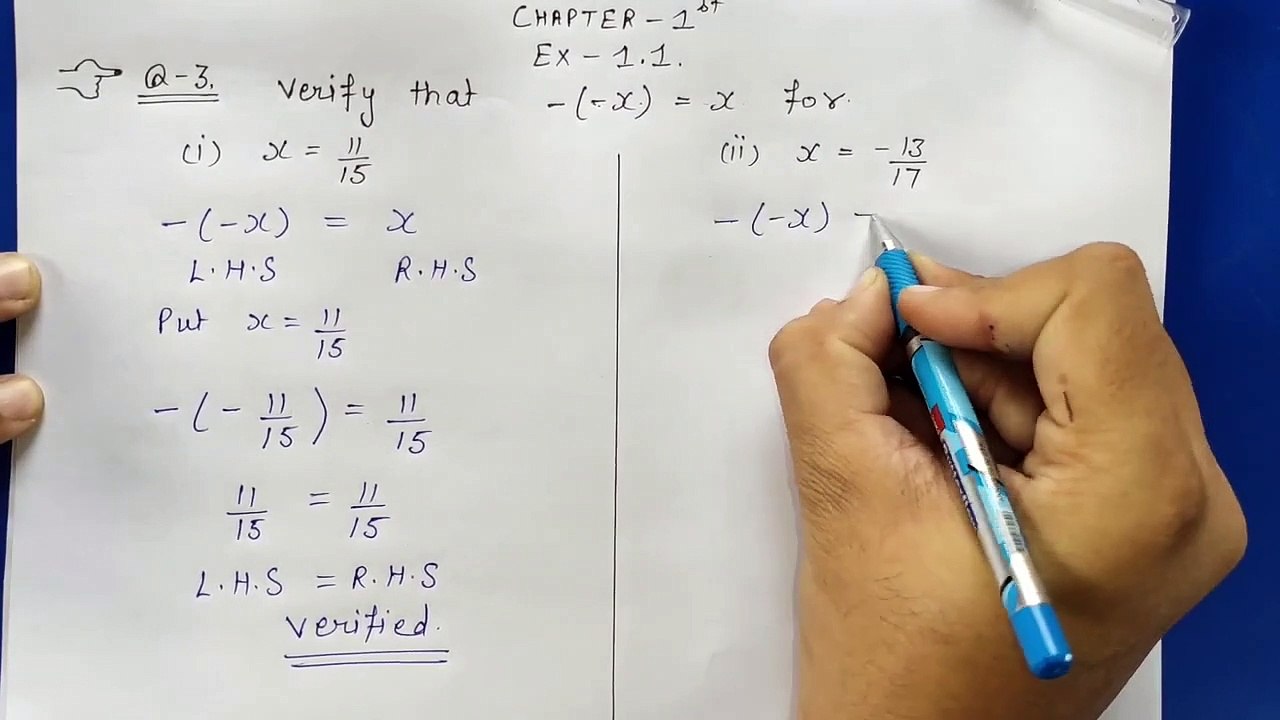 CHAPTER - 1st
EX - 1.1.
Q-3. Verify that -(-x) = x for.
(i) x = 11/15
-(-x) = x
L.H.S R.H.S
Put x = 11/15
-(-11/15) = 11/15
11/15 = 11/15
L.H.S = R.H.S
Verified.
(ii) x = -13/17
-(-x) -